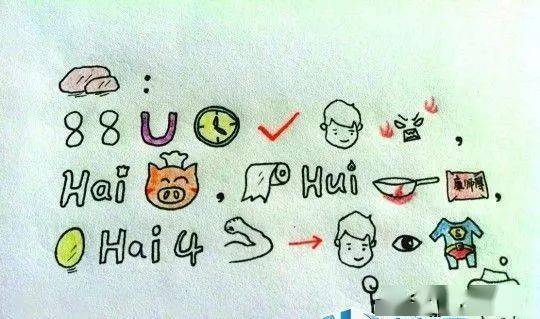 :
88U,
Hai, Hui 康师傅,
Hai 4 S